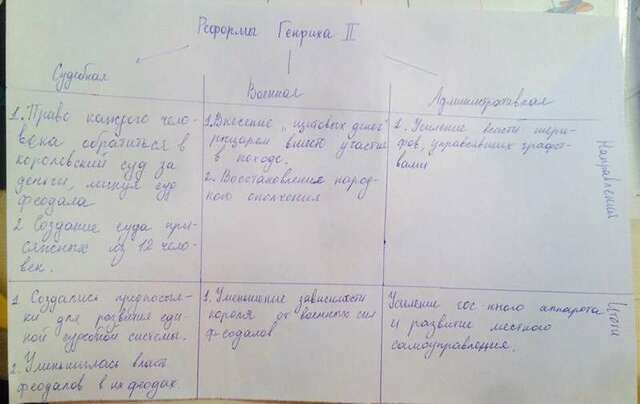 Реформы Генриха II
Судебная
Военная
Административная
1. Право каждого чело-
века обратиться в
королевский суд за
деньги, минуя суд
феодала
2 Создание суда при-
сяжных из 12 чело-
век.
1. Внесение „щитовых денег"
рыцарем вместо участия
в походе.
2. Восстановления народ-
ного ополчения
1. Усиление власти шери-
фов, управлявших графст-
вами
Направления
1 Создались предпосыл-
ки для развития еди-
ной судебной системы.
2. Уменьшилась власть
феодалов в их феодах.
1. Уменьшение зависимости
короля от военных сил
феодалов
Усиление гос-нного аппарата
и развитие местного
самоуправления.
Итоги